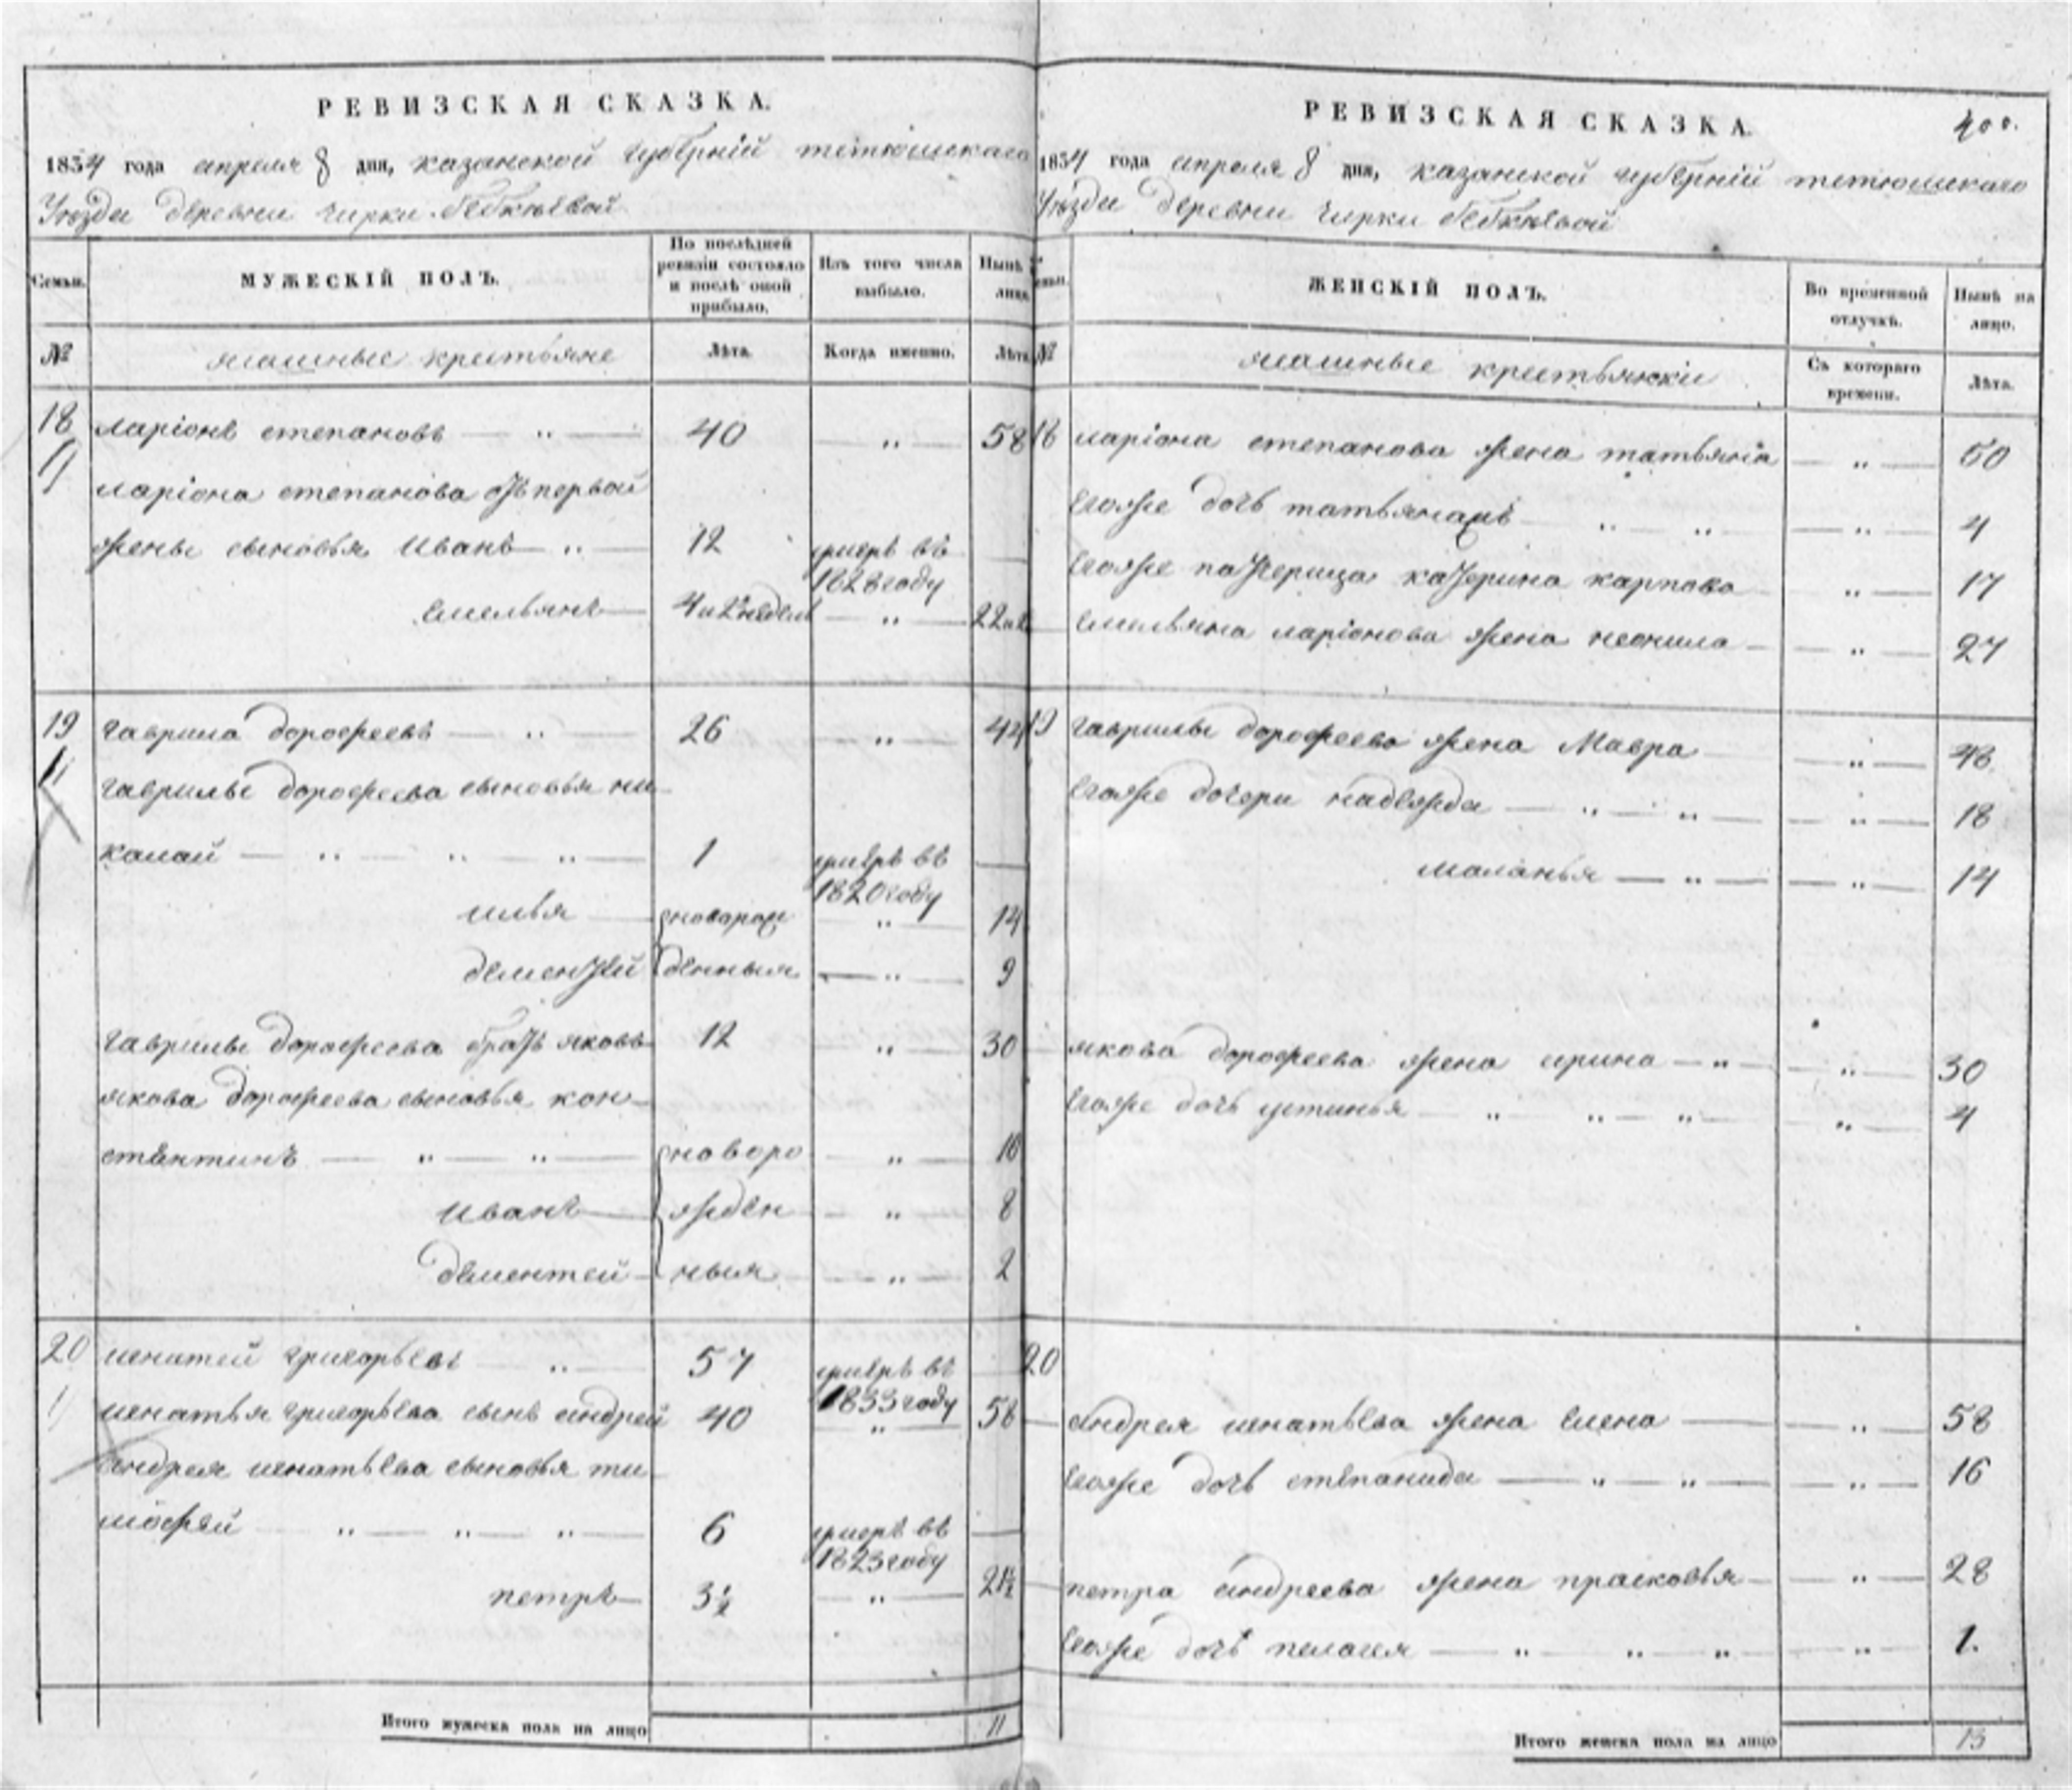 РЕВИЗСКАЯ СКАЗКА.
1834 года апреля 8 дня, казанской губерніи тетюшскаго
Уезда деревни чирки бебкеевой
Семьи. МУЖЕСКІЙ ПОЛЪ. По послѣдней ревизіи состояло и послѣ оной прибыло. Изъ того числа выбыло. Нынѣ лицо
№ ясашные крестьяне Лѣта. Когда именно. Лѣта
18 ларіонъ степановъ — „ — 40 — „ — 58
11 ларіона степанова отъ первой
жены сыновья иванъ — „ — 12 умеръ въ 1828 году —
емельянъ — 4 и 2 недели — „ — 22 и 2
19 гаврила дорофеевъ — „ — 26 — „ — 44
11 гаврилы дорофеева сыновья ни-
калай — „ „ „ — 1 умеръ въ 1820 году —
илья — новораж „ 14
дементей денныя — „ — 9
гаврилы дорофеева братъ яковъ 12 — „ — 30
якова дорофеева сыновья кон-
стентинъ — „ — „ — новоро — „ — 16
иванъ — жден — „ — 8
дементей — ныя — „ — 2
20 игнатей григорьевъ — „ 57 умеръ въ 1833 году —
игнатья григорьева сынъ андрей 40 — „ — 58
андрея игнатьева сыновья ти-
мофей — „ — „ — „ — 6 умеръ въ 1823 году —
петръ — 3½ — „ — 21½
Итого мужеска пола на лицо 11
РЕВИЗСКАЯ СКАЗКА.
400.
1834 года апреля 8 дня, казанской губерніи тетюшскаго
Уезда деревни чирки бебкеевой
семьи. ЖЕНСКІЙ ПОЛЪ. Во временной отлучкѣ. Нынѣ на лицо.
№ ясашные крестьянки Съ котораго времени. Лѣта.
18 ларіона степанова жена татьяна — „ — 50
егоже дочь татьянаже „ „ — „ — 4
егоже патчерица катерина карпова „ — 17
емельяна ларіонова жена неонила — „ — 27
19 гаврилы дорофеева жена Мавра — „ — 48
егоже дочери надежда — „ — „ — — „ — 18
маланья — „ — — „ — 14
якова дорофеева жена ирина — „ — — „ — 30
егоже дочь устинья — „ „ — „ — „ 4
20
андрея игнатьева жена елена — — „ — 58
егоже дочь степанида — „ — „ — — „ — 16
петра андреева жена прасковья — — „ — 28
егоже дочь пелагея — „ „ „ — „ — 1.
Итого женска пола на лицо 13